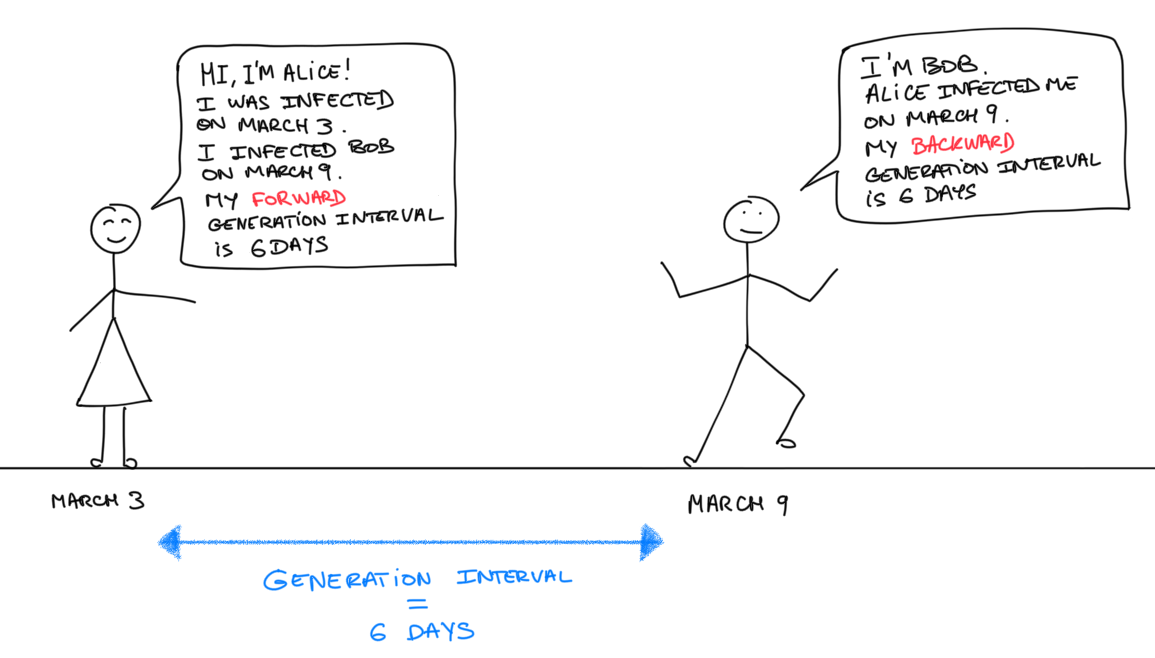 HI, I'M ALICE!
I WAS INFECTED
ON MARCH 3.
I INFECTED BOB
ON MARCH 9.
MY FORWARD
GENERATION INTERVAL
IS 6 DAYS
I'M BOB.
ALICE INFECTED ME
ON MARCH 9.
MY BACKWARD
GENERATION INTERVAL
IS 6 DAYS
MARCH 3
MARCH 9
GENERATION INTERVAL
=
6 DAYS